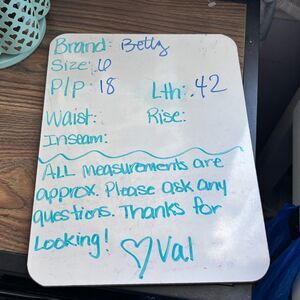 Brand: Betty
Size: 6
P/p: 18 Lth: 42
Waist: Rise:
Inseam:
ALL measurements are
approx. Please ask any
questions. Thanks for
Looking! ♡Val